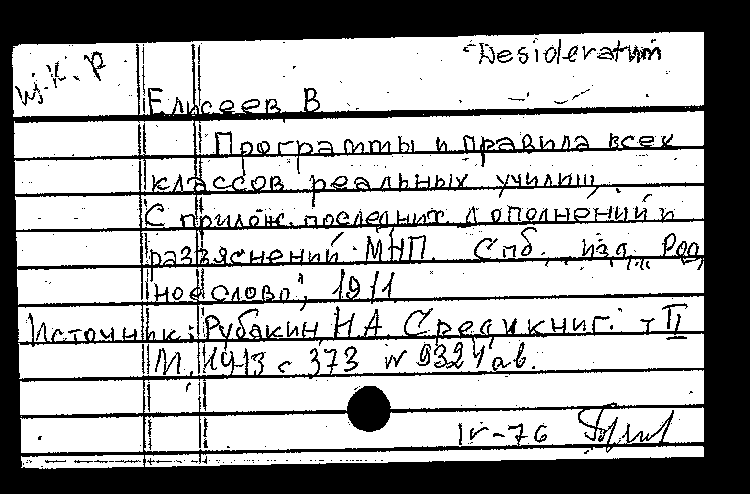 Desideratum
Ш.К.Р
Елисеев, В
Программы и правила всех
классов реальных училищ,
С прилож. последних дополнений и
разъяснений МНП. Спб., изд. "Род
ное слово", 1911
Источник: Рубакин, Н.А. Среди книг. т II
М, 1913 с 373 № 9324 ав.
IV-76